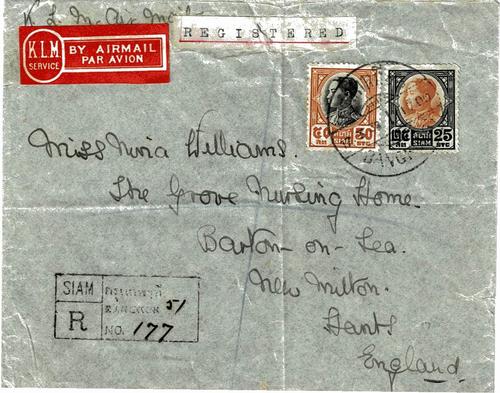 K. L. M. Air Mail
REGISTERED
K.L.M
SERVICE
BY AIRMAIL
PAR AVION
๕๐ สต. สยาม SIAM 50 STG
๒๕ สต. สยาม SIAM 25 STG
BANGK
Miss Nivia Williams.
The Grove Nursing Home.
Barton-on-Sea.
New Milton.
Hants
England.
SIAM
R
กรุงเทพฯ
BANGKOK 51
NO. 177